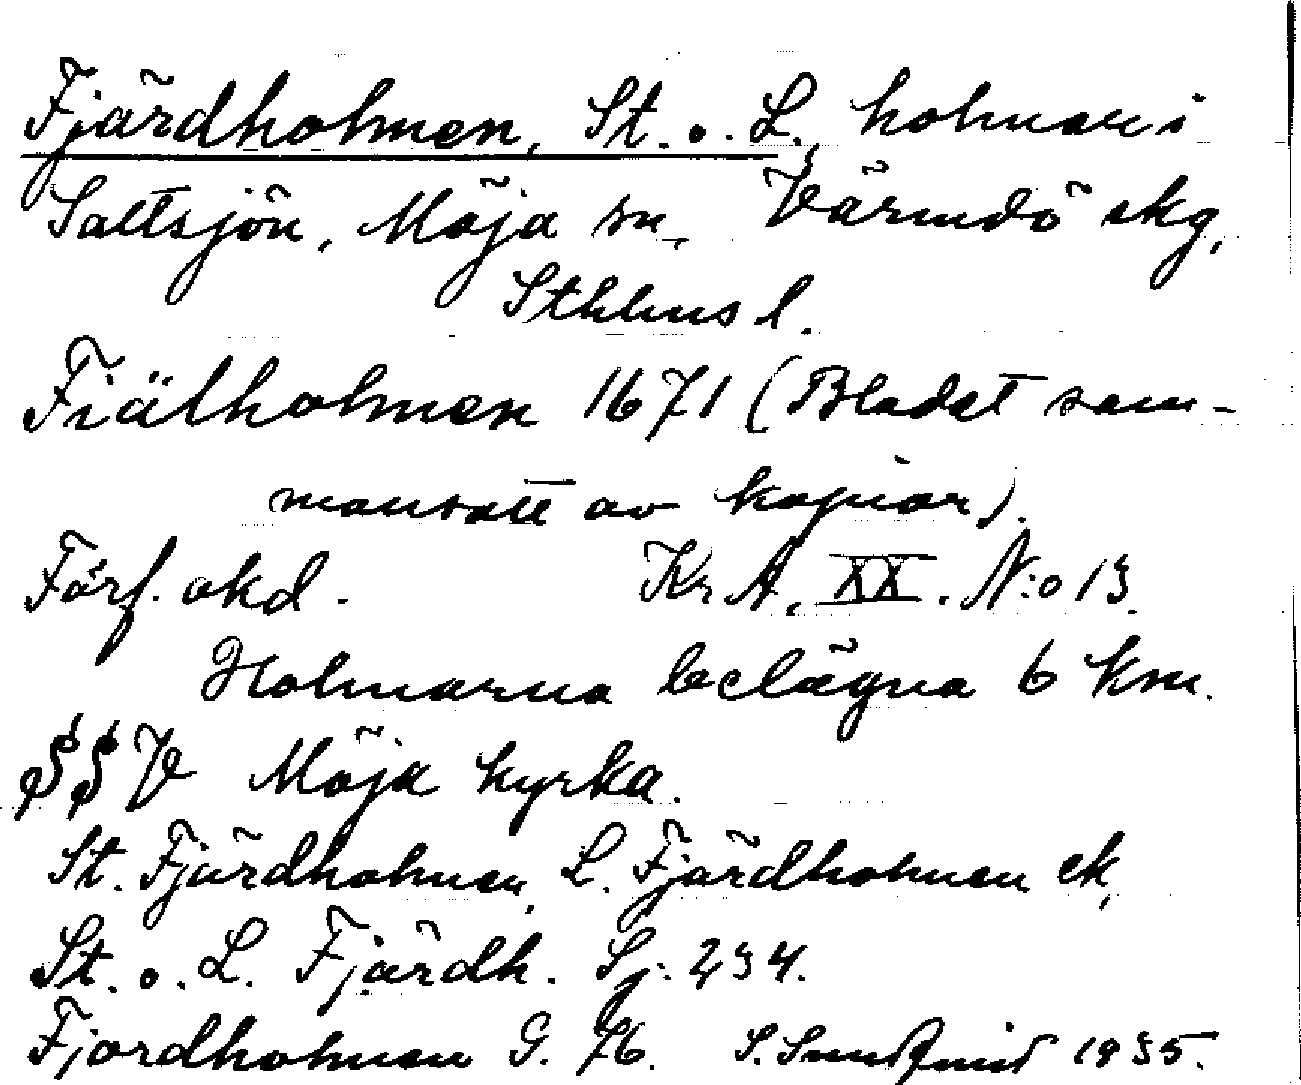 Fjärdholmen, St. o. L., holmar i
Saltsjön, Möja sn, Värmdö skg,
Sthlms l.
Fiälholmen 1671 (Bladet sam-
mansatt av kopior).
Förf. okd. Kr A, XX. N:o 13.
Holmarna belägna 6 km.
§§ V Möja kyrka.
St. Fjärdholmen, L. Fjärdholmen ek,
St. o. L. Fjärdh. Sj. 234.
Fjordholmen G. 76. S. 1935.